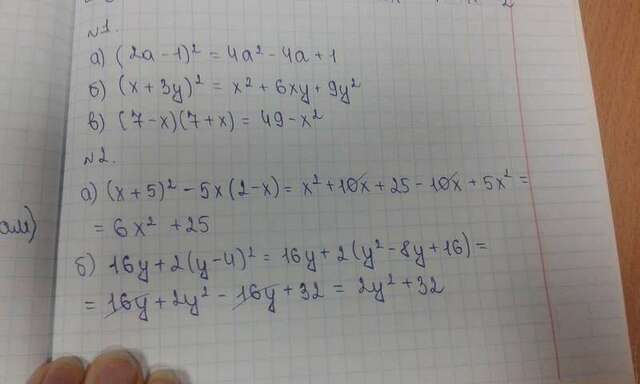 №1.
а) (2a - 1)² = 4a² - 4a + 1
б) (x + 3y)² = x² + 6xy + 9y²
в) (7 - x)(7 + x) = 49 - x²
№2.
а) (x + 5)² - 5x(2 - x) = x² + 10x + 25 - 10x + 5x² =
= 6x² + 25
б) 16y + 2(y - 4)² = 16y + 2(y² - 8y + 16) =
= 16y + 2y² - 16y + 32 = 2y² + 32